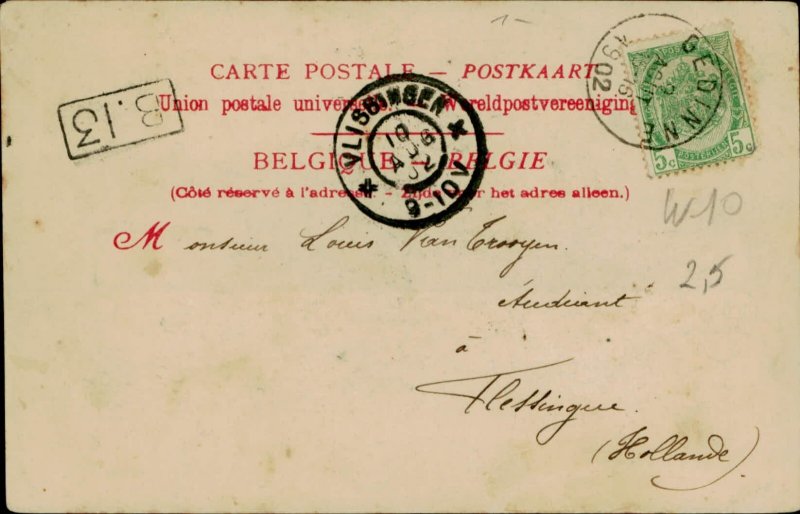 1-
CARTE POSTALE - POSTKAART
Union postale universelle. Wereldpostvereeniging
BELGIQUE BELGIE
(Côté réservé à l'adresse. - Zijde voor het adres alleen.)
B.13
VLISSINGEN
10 8
9-10V
GEDINNE
1902
5c POSTERIJEN 5c
W-10
2,5
Monsieur Louis Van
Étudiant
à
Flessingue.
(Hollande)